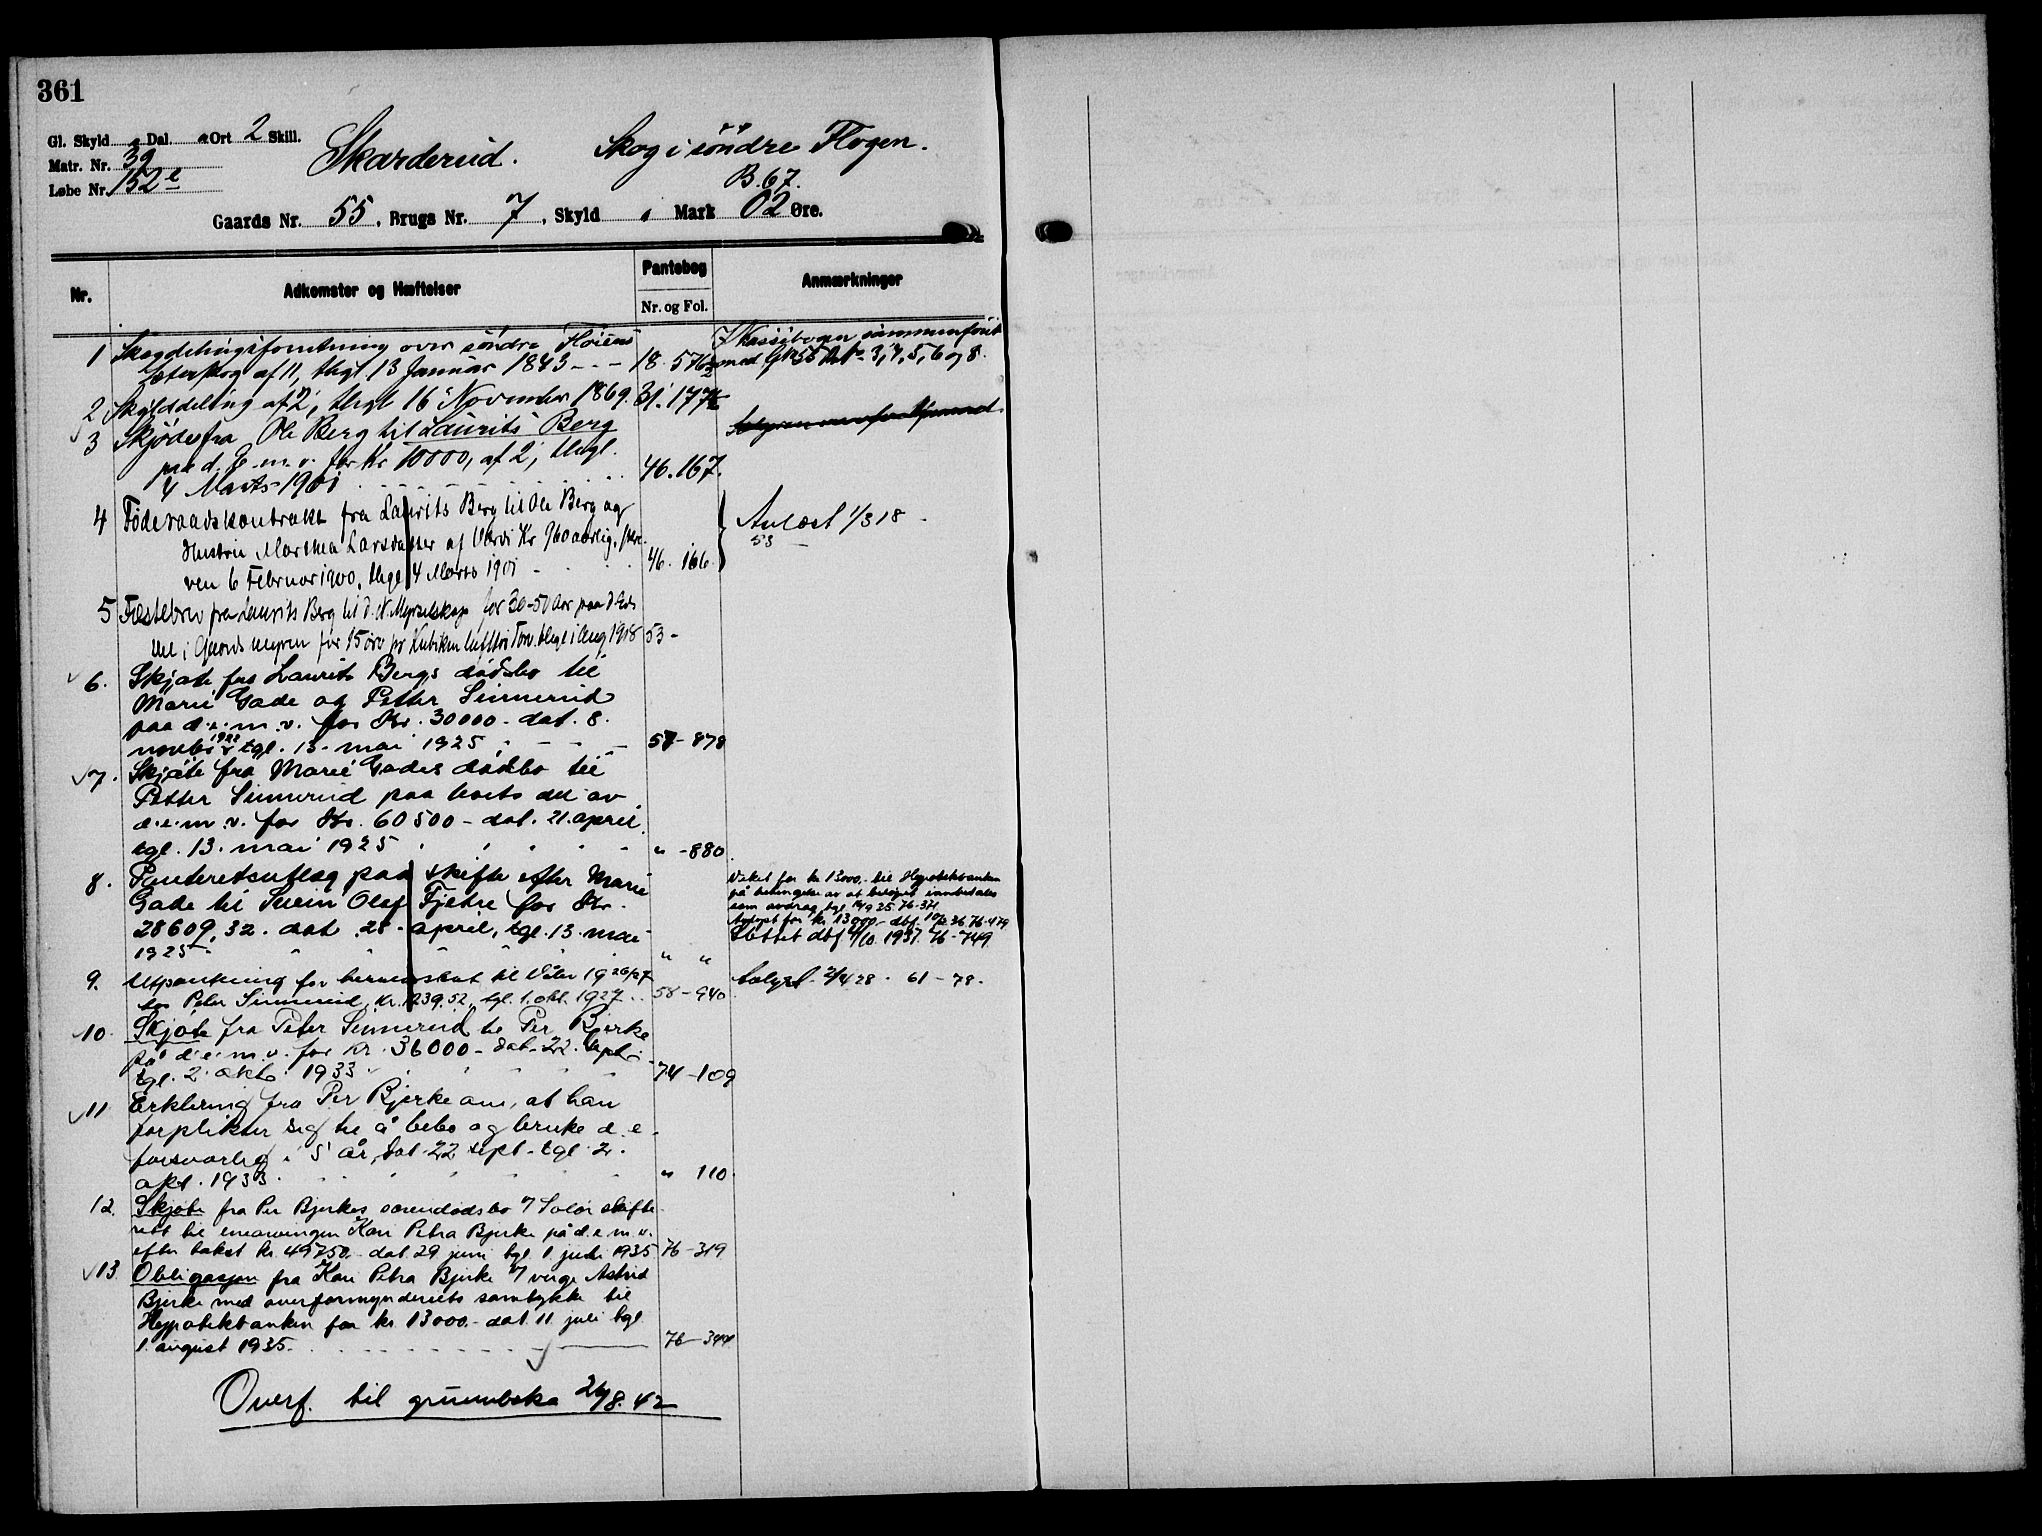 361
Gl. Skyld " Dal. " Ort 2 Skill.
Matr. Nr. 39
Løbe Nr. 152e
Skarderud. Skog i söndre Flogen.
B. 67.
Gaards Nr. 55, Brugs Nr. 7, Skyld " Mark 02 Øre.
Nr. Adkomster og Hæftelser Pantebog Nr. og Fol. Anmærkninger
1 Skogdelingsforretning over söndre Flöiens
Sæterskog af 11, thgl. 13 Januar 1843 - - - 18. 576
med Gno 55 Bno 3, 4, 5, 6 og 8.
2 Skylddeling af 2, thgl 16 November 1869. 31. 177
3 Skjöde fra Ole Berg til Laurits Berg
paa d. E. m. v. for Kr 10000, af 2, thgl.
4 Marts 1901 46. 167.
4 Föderaadskontrakt fra Laurits Berg til Ole Berg og
Hustru Marthea Larsdatter af Værdi Kr 960 aarlig,
ven 6 Februar 1900, thgl 4 Marts 1901 - 46. 166.
Avlæst 1/3 18 -
53 -
5 Fæstebrev fra Laurits Berg til D. N. Myrselskap for 30-50 Aar paa
Del i myren for 15 øre pr Kubikm lufttør Torv. thgl i Aug 1918 53 -
6. Skjøte fra Laurits Bergs dødsbo til
Marie Gade og Petter Sinnerud
paa d. e. m. v. for Kr. 30000 - dat. 8.
novbr 1922 tgl. 13. mai 1925 57 - 878
7. Skjøte fra Marie Gades dødsbo til
Petter Sinnerud paa hvets del av
d. e. m. v. for Kr. 60500 - dat. 21. april
tgl. 13. mai 1925 " - 880.
8. Panteretsutlæg paa skifte efter Marie
Gade til Svein Olaf Fjetre for Kr.
28609,32. dat 28. april, tgl. 13. mai
1925 - " "
Veket for kr. 13000,- til Hypotekbanken
på betingelse av at beløpet innbetales
som avdrag, tgl. 76-371
Avlyst for kr. 13000,- dbf. 36 76-479
Slettet dbf 1/10. 1937. 76-749
9. Utpantning for herredsskat til Våler 1926/27
hos Peter Sinnerud, kr. 1239,52, tgl. 1. okt. 1927. 58 - 940
Avlyst 2/4 28. 61 - 78.
10. Skjøte fra Peter Sinnerud til Per Bjerke
på d. e. m. v. for kr. 36000 - dat. 22. septr.
tgl. 2. oktr. 1933. 74 - 109
11 Erklæring fra Per Bjerke om, at han
forplikter seg til å bebo og bruke d. e.
forsvarlig i 5 år, dat. 22 sept. tgl. 2.
okt. 1933. " 110.
12. Skjøte fra Per Bjerkes særendødsbo v/ Solør skifte-
rett til enearvingen Kari Petra Bjerke på d. e. m. v.
efter takst kr. 49750,- dat. 29 juni tgl. 1. juli 1935 76 - 319
13. Obligasjon fra Kari Petra Bjerke v/ verge Astrid
Bjerke med overformynderiets samtykke til
Hypotekbanken for kr. 13000.- dat. 11. juli tgl.
1. august 1935. 76 - 344
Overf. til grunnboka 26/8. 42